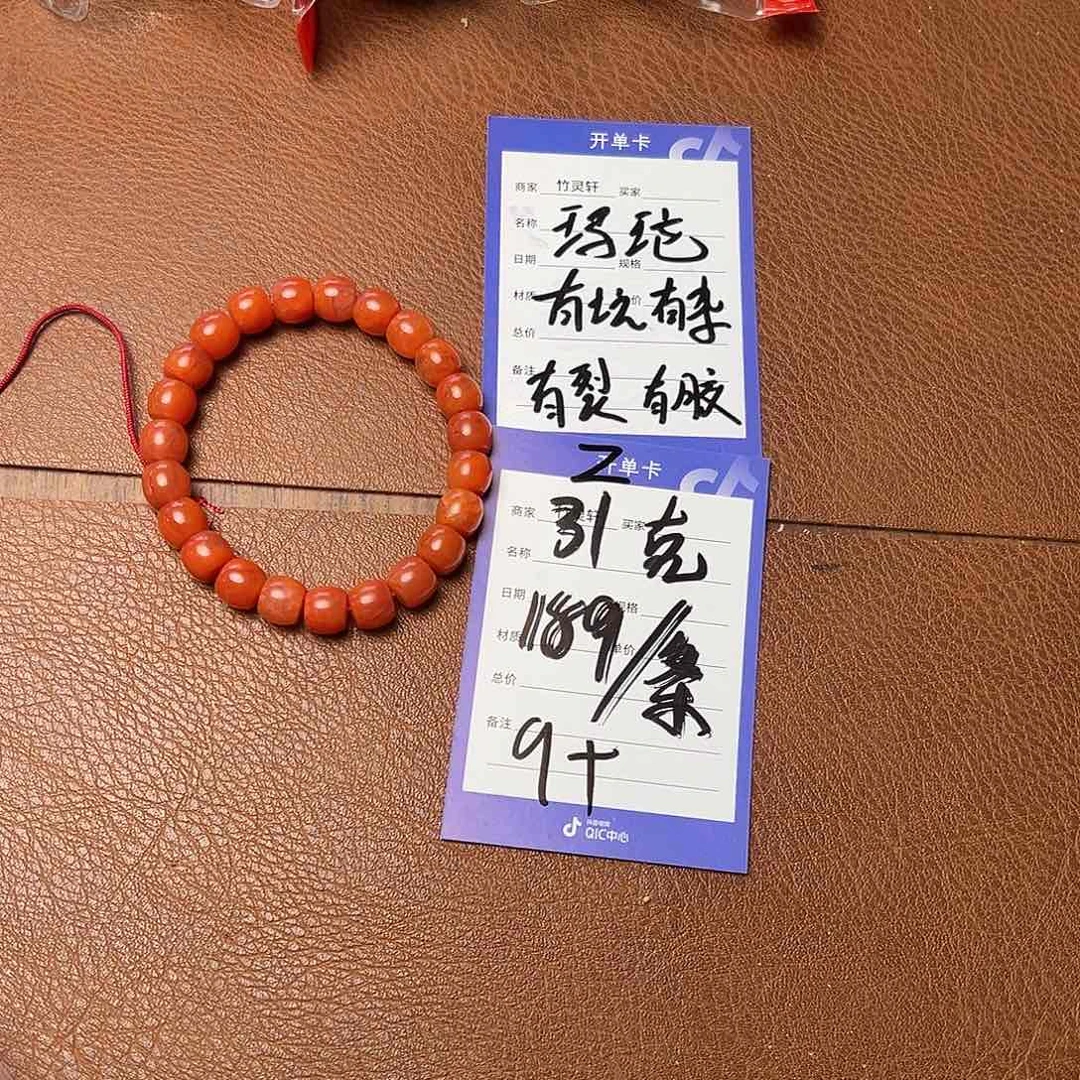 开单卡
商家 竹灵轩 买家
名称 玛瑙
日期 规格
材质 有坑有杂 价
总价
备注 有裂 有胶
开单卡
商家 31克 买家
名称
日期 规格
材质 189/条 单价
总价
备注 9+
抖音电商
QIC中心